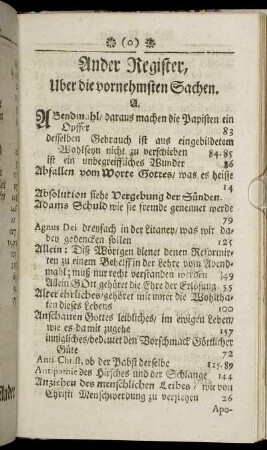 (o)
Ander Register,
Uber die vornehmsten Sachen.
A.
ABendmahl / daraus machen die Papisten ein
Opffer 83
desselben Gebrauch ist aus eingebildetem
Wohlseyn nicht zu verschieben 84. 85
ist ein unbegreiffliches Wunder 86
Abfallen vom Worte Gottes / was es heiße
14
Absolution siehe Vergebung der Sünden.
Adams Schuld wie sie fremde genennet werde
79
Agnus Dei dreyfach in der Litaney / was wir da-
bey gedencken sollen 125
Allein: Diß Wörtgen dienet denen Reformir-
ten zu einem Behelff in der Lehre vom Abend-
mahl; muß nur recht verstanden werden 149
Allein GOtt gehöret die Ehre der Erlösung 55
Alter ehrliches / gehöret mit unter die Wohltha-
ten dieses Lebens 100
Anschauen Gottes leibliches / im ewigen Leben /
wie es damit zugehe 157
innigliches / bedeutet den Vorschmack Göttlicher
Güte 72
Anti-Christ, ob der Pabst derselbe 125. 89
Antipathie des Hirsches und der Schlange 144
Anziehen des menschlichen Leibes / wie von
Christi Menschwerdung zu verstehen 26
Apo-